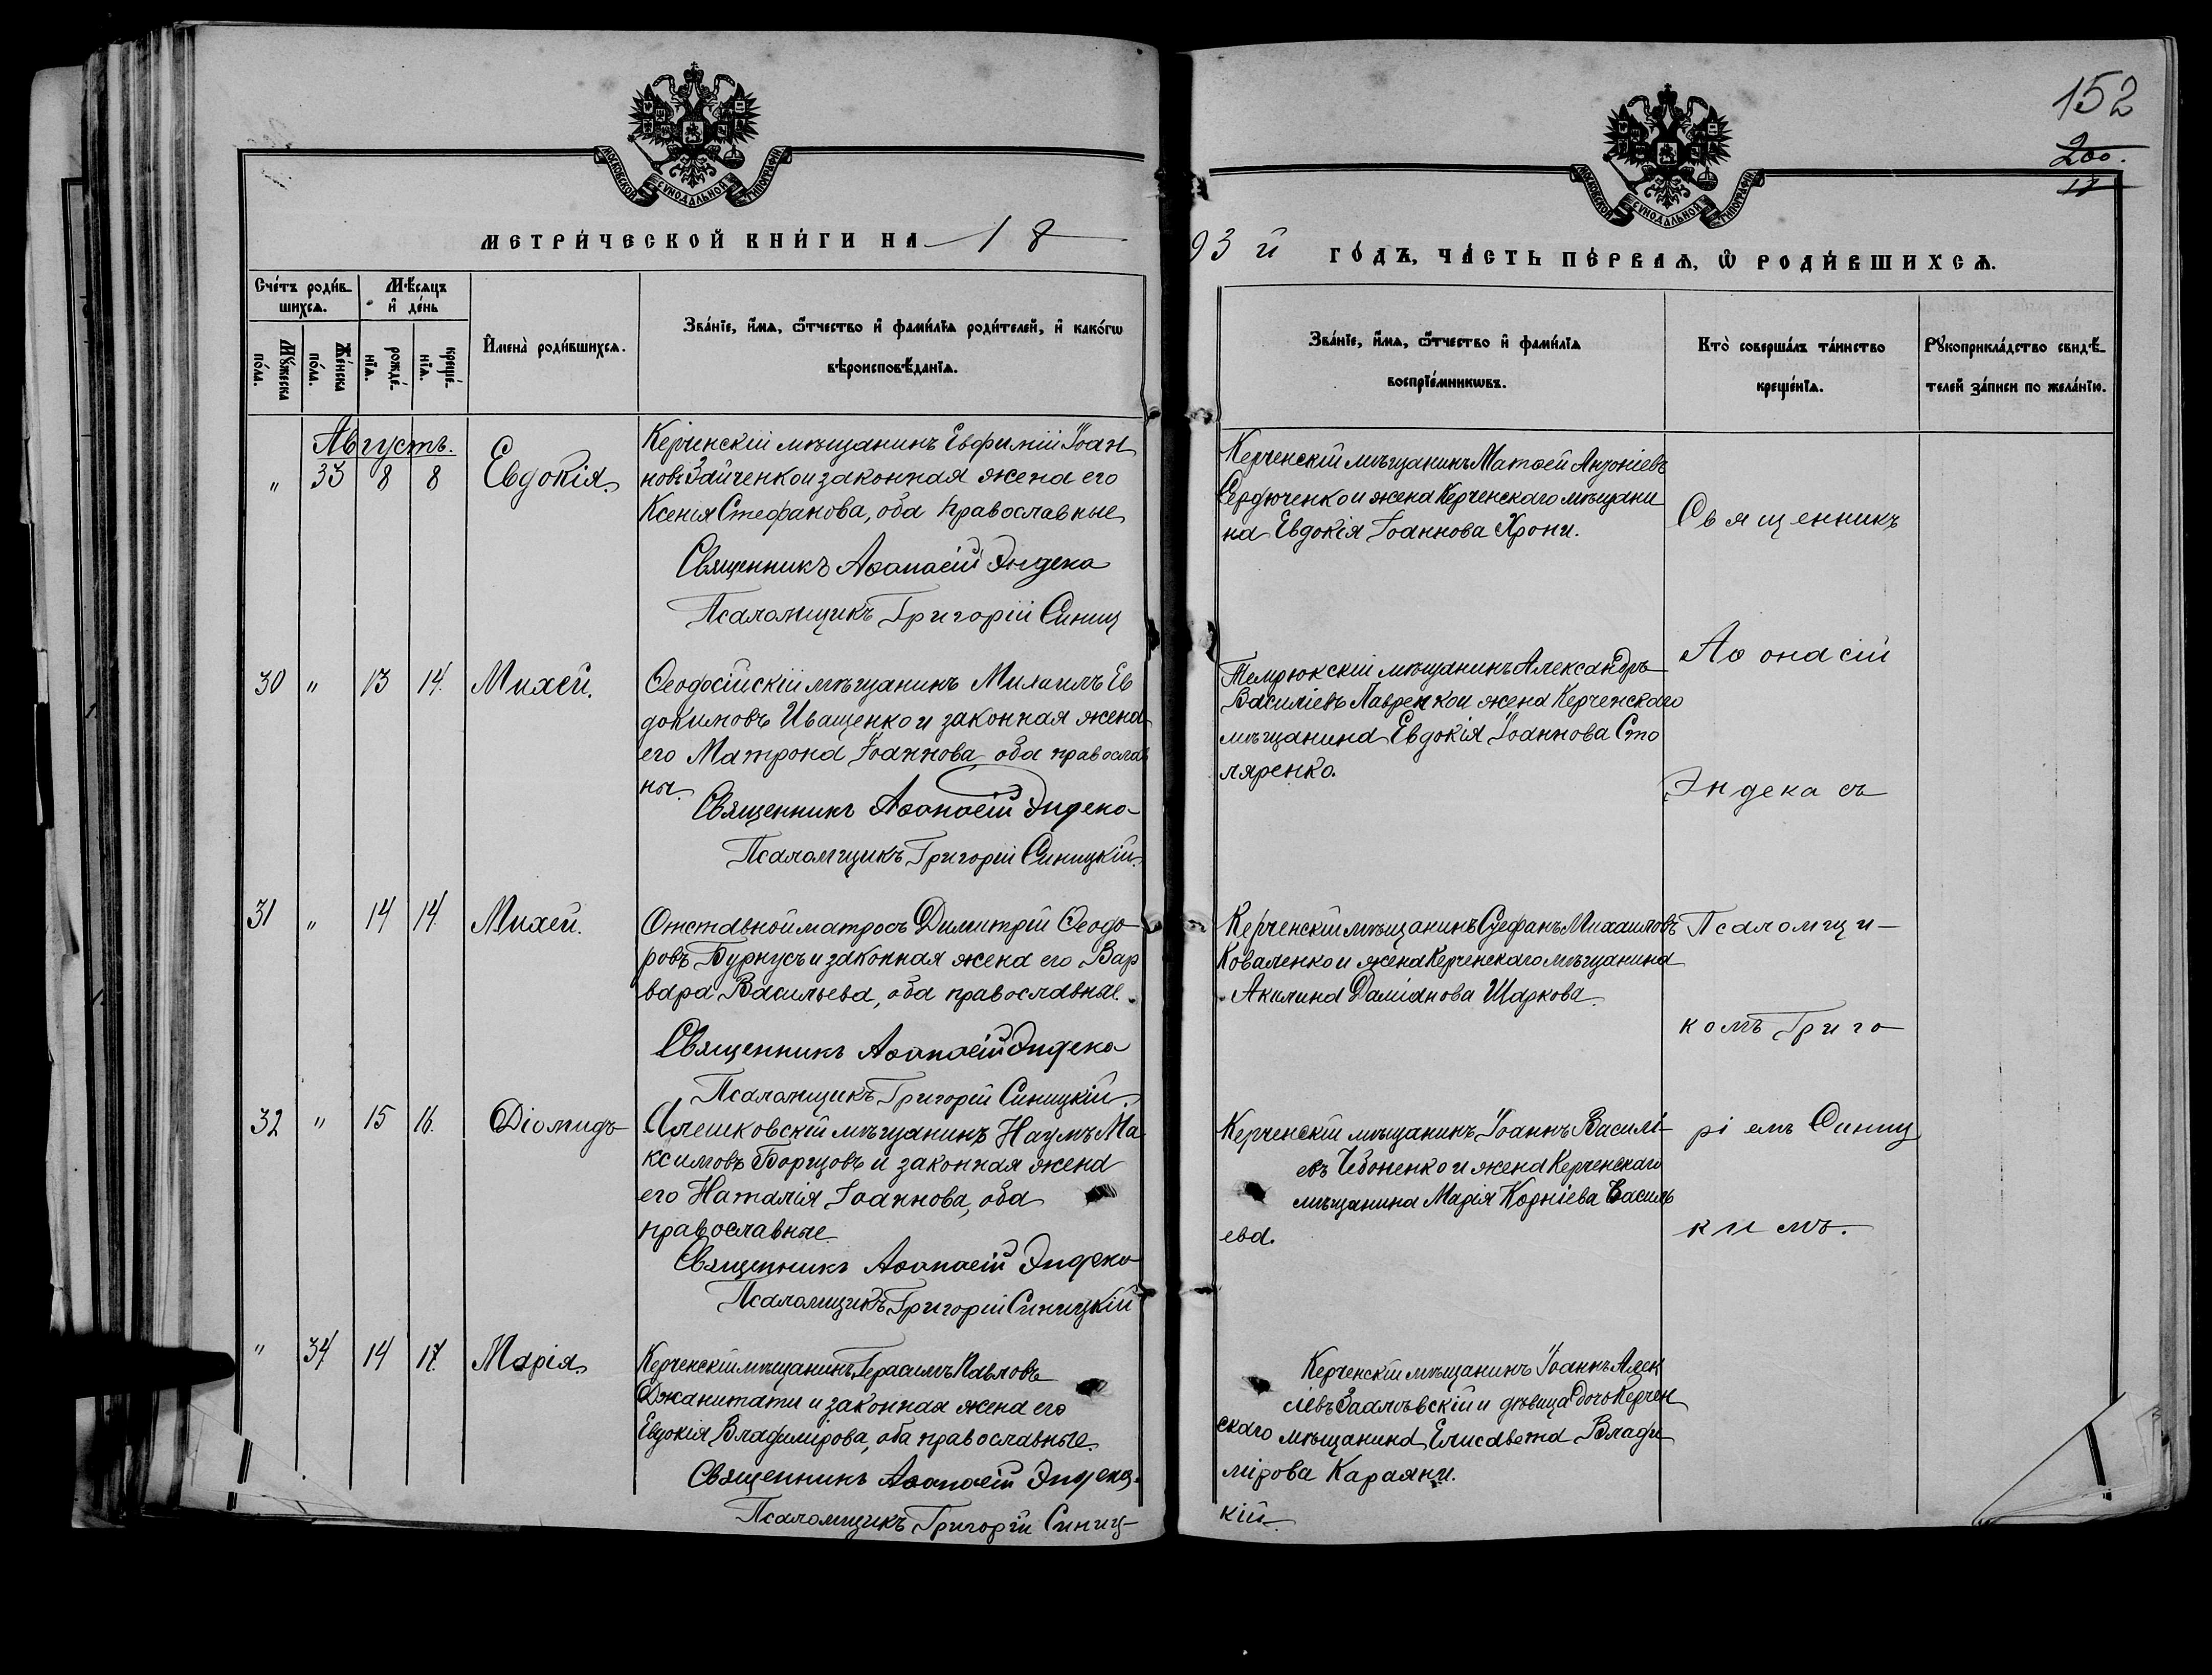 152
200.
МОСКОВСКОЙ СѴНОДАЛЬНОЙ ТИПОГРАФІИ
МОСКОВСКОЙ СѴНОДАЛЬНОЙ ТИПОГРАФІИ
МЕТРИ́ЧЕСКОЙ КНИ́ГИ НА 18
93 й ГО́ДЪ, ЧА́СТЬ ПЕ́РВАѦ, Ѡ РОДИ́ВШИХСѦ.
Сче́тъ роди́в-
шихсѧ.
Мѣ́сѧцъ
и҆ де́нь
Мꙋ́жеска
по́ла.
Же́нска
по́ла.
рожде́-
нїѧ.
креще́-
нїѧ.
И҆мена̀ роди́вшихсѧ.
Зва́нїе, и҆́мѧ, ѻ҆́тчество и҆ фами́лїѧ роди́телей, и҆ како́гѡ
вѣроисповѣ́данїѧ.
Зва́нїе, и҆́мѧ, ѻ҆́тчество и҆ фами́лїѧ
воспрїе́мникѡвъ.
Кто̀ соверша́лъ та́инство
креще́нїѧ.
Рꙋкоприкла́дство свидѣ́-
телей за́писи по жела́нїю.
Августъ.
" 33 8 8 Евдокія.
Керченскій мѣщанинъ Евфимій Іоан
новъ Зайченко и законная жена его
Ксенія Стефанова, оба православные
Священникъ Аѳанасій Эндека
Псаломщикъ Григорій Синиц
Керченскій мѣщанинъ Матѳей Антоніевъ
Сердюченко и жена Керченскаго мѣщани
на Евдокія Іоаннова Хрони.
Священникъ
30 " 13 14. Михей.
Ѳеодосійскій мѣщанинъ Михаилъ Ев
докимовъ Иващенко и законная жена
его Матрона Іоаннова оба православ
ны.
Священникъ Аѳанасій Эндека
Псаломщикъ Григорій Синицкій.
Темрюкскій мѣщанинъ Александръ
Василіевъ Лавренко и жена Керченскаго
мѣщанина Евдокія Іоаннова Сто
ляренко.
Аѳонасій
Эндека съ
31 " 14 14. Михей.
Отставной матросъ Димитрій Ѳеодо-
ровъ Бурнусъ и законная жена его Вар
вара Васильева, оба православные.
Священникъ Аѳанасій Эндека
Псаломщикъ Григорій Синицкій.
Керченскій мѣщанинъ Стефанъ Михаиловъ
Коваленко и жена Керченскаго мѣщанина
Акилина Даміанова Шаркова.
Псаломщи-
комъ Григо
32 " 15 16. Діомидъ
Алешковскій мѣщанинъ Наумъ Ма-
ксимовъ Борщовъ и законная жена
его Наталія Іоаннова, оба
православные
Священникъ Аѳанасій Эндека
Псаломщикъ Григорій Синицкій
Керченскій мѣщанинъ Іоаннъ Василі-
евъ Чебоненко и жена Керченскаго
мѣщанина Марія Корніева Василь
ева.
ріемъ Синиц
кимъ.
" 34 14 17. Марія.
Керченскій мѣщанинъ Герасимъ Павловъ
Джанитати и законная жена его
Евдокія Владимірова, оба православные.
Священникъ Аѳанасій Эндека.
Псаломщикъ Григорій Синиц-
Керченскій мѣщанинъ Іоаннъ Алек
сіевъ и дѣвица дочь Керчен
скаго мѣщанина Елисавета Влади
мірова Караяни.
кій.